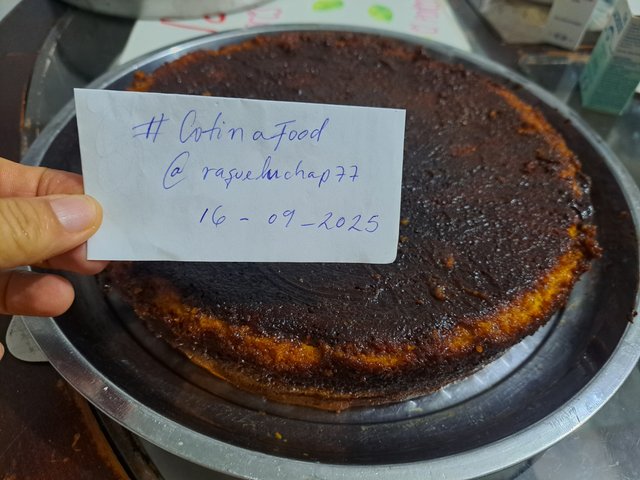 # Cotina Food
@ raqueluchap77
16 - 09 - 2025